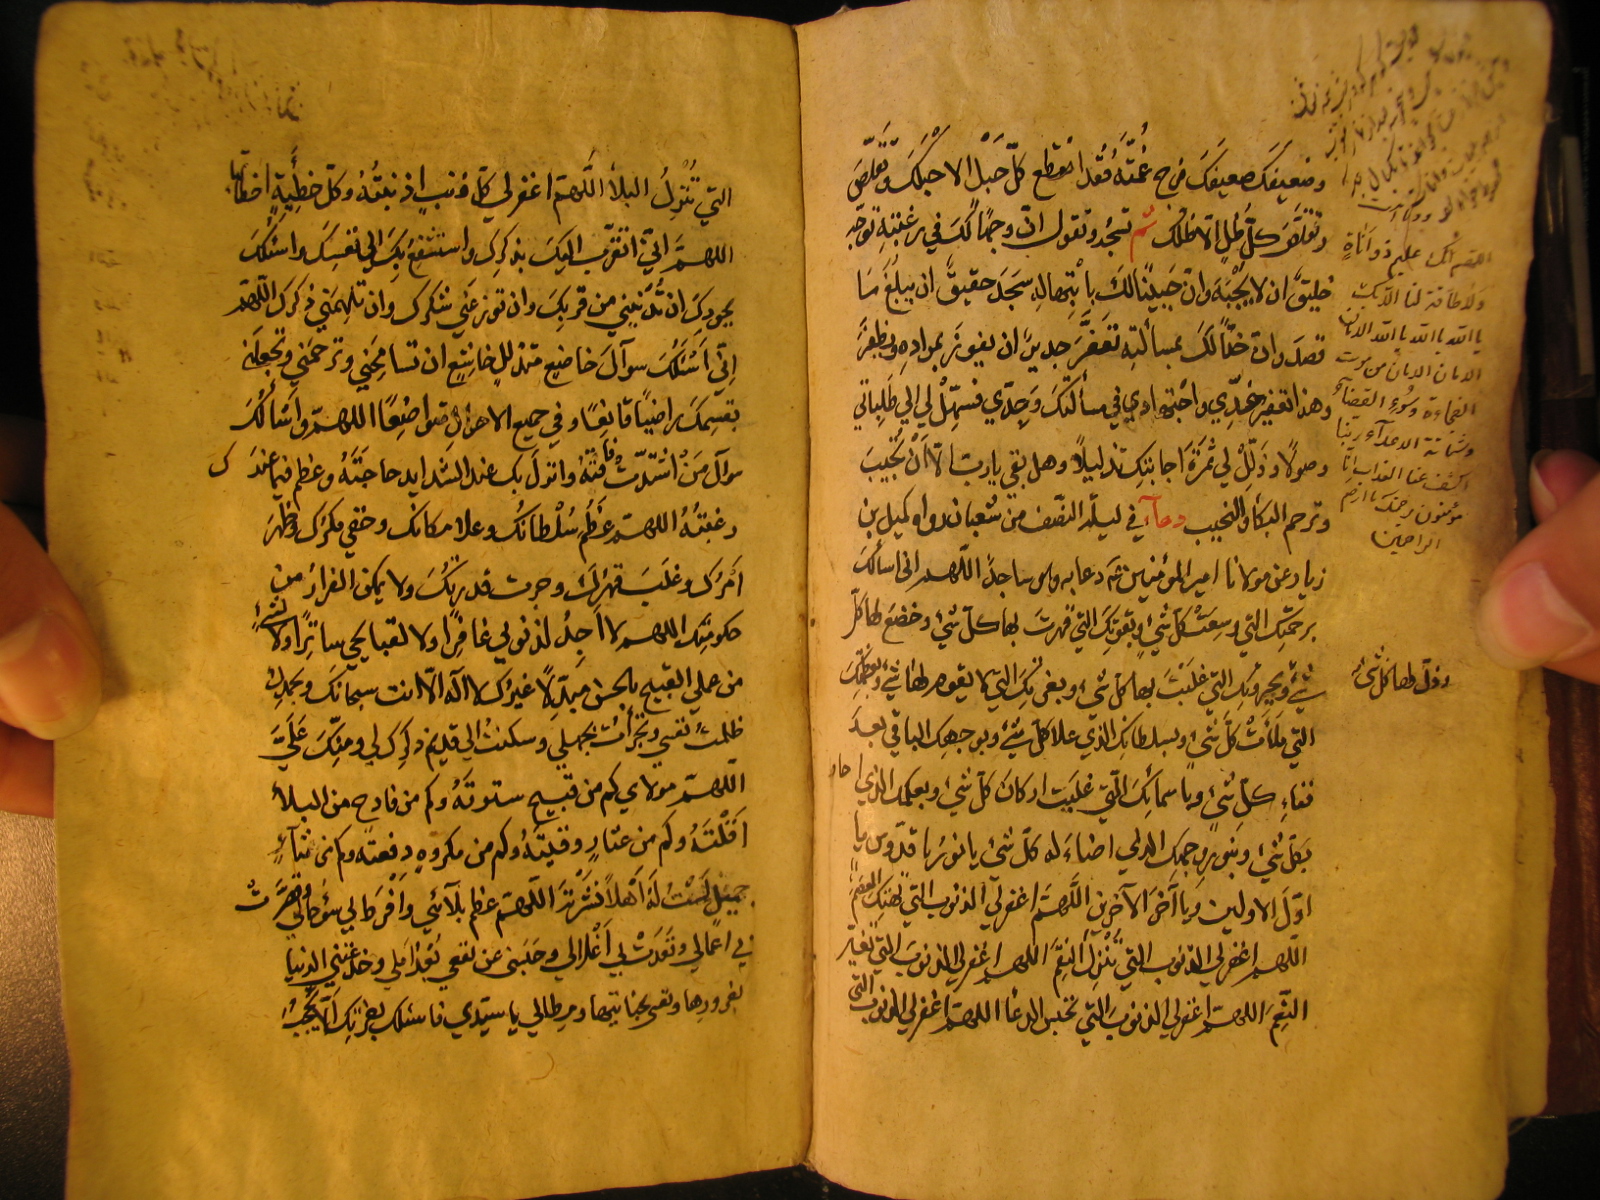 وضعيفك ضعيفك فرج غمته فقد انقطع كل حبل الا حبلك وتقلص
وتقلص كل ظل الا ظلك ثم تسجد وتقول ان وجها لك في رغبته توجه
خليق ان لا يجبه وان جبينا لك بابتهاله سجد حقيق ان يبلغ ما
قصد وان خدا لك بمسألته تعفر جدير ان يفوز بمراده ويظفر
وهذا تعفير خدي واجتهادي في مسألتك وجدي فسهل لي الي طلباتي
وصولا وذلل لي ثمرة اجابتك تذليلا
وترحم البكا والنحيب دعاء في ليلة النصف من شعبان رواه كميل بن
زياد عن مولانا امير المؤمنين دعا به وهو ساجد اللهم اني اسألك
برحمتك التي وسعت كل شئ وبقوتك التي قهرت بها كل شئ وخضع لها كل
شئ وبجبروتك التي غلبت بها كل شئ وبعزتك التي لا يقوم لها شئ وبعظمتك
وذل لها كل شئ
التي ملأت كل شئ وبسلطانك الذي علا كل شئ وبوجهك الباقي بعد
فناء كل شئ وباسمائك التي غلبت اركان كل شئ وبعلمك الذي احاط
بكل شئ وبنور وجهك الذي اضاء له كل شئ يا نور يا قدوس يا
اول الاولين ويا آخر الآخرين اللهم اغفر لي الذنوب التي تهتك العصم
اللهم اغفر لي الذنوب التي تنزل النقم اللهم اغفر لي الذنوب التي تغير
النعم اللهم اغفر لي الذنوب التي تحبس الدعا اللهم اغفر لي الذنوب التي
يا الله يا الله يا الله الامان
الامان الامان من موت
الفجاءة وسوء القضاء
وشماتة الاعداء ربنا
اكشف عنا العذاب انا
مؤمنون برحمتك يا ارحم
الراحمين
التي تنزل البلاء اللهم اغفر لي كل ذنب اذنبته وكل خطيئة اخطأتها
اللهم اني اتقرب اليك بذكرك واستشفع بك الي نفسك واسئلك
بجودك ان تدنيني من قربك وان توزعني شكرك وان تلهمني ذكرك اللهم
اني اسئلك سوآل خاضع متذلل خاشع ان تسامحني وترحمني وتجعلني
بقسمك راضيا قانعا وفي جميع الاحوال متواضعا اللهم واسألك
سوآل من اشتدت فاقته وانزل بك عند الشدايد حاجته وعظم فيما عندك
رغبته اللهم عظم سلطانك وعلا مكانك وخفي مكرك وظهر
امرك وغلب قهرك وجرت قدرتك ولا يمكن الفرار من
حكومتك اللهم لا اجد لذنوبي غافرا ولا لقبايحي ساترا ولا لشئ
من عملي القبيح بالحسن مبدلا غيرك لا اله الا انت سبحانك وبحمدك
ظلمت نفسي وتجرأت بجهلي وسكنت الي قديم ذكرك لي ومنك علي
اللهم مولاي كم من قبيح سترته وكم من فادح من البلاء
اقلته وكم من عثار وقيته وكم من مكروه دفعته وكم من ثناء
جميل لست له اهلا نشرته اللهم عظم بلائي وافرط بي سوء حالي وقصرت
بي اعمالي وقعدت بي اغلالي وحبسني عن نفعي بعد املي وخدعتني الدنيا
بغرورها ونفسي بجنايتها ومطالي يا سيدي فاسئلك بعزتك ان لا يحجب